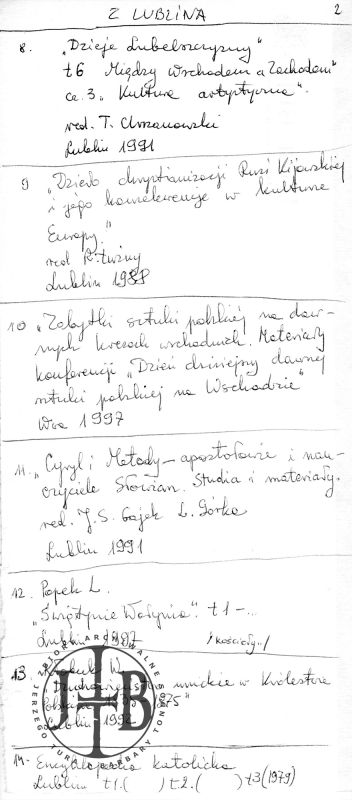 Z LUBLINA 2
8. „Dzieje Lubelszczyzny"
t6 Między Wschodem a Zachodem"
cz. 3 „Kultura artystyczna".
red. T. Chrzanowski
Lublin 1991
9 „Dzieło chrystianizacji Rusi Kijowskiej
i jego konsekwencje w kulturze
Europy."
red R. Łużny
Lublin 1988
10 „Zabytki sztuki polskiej na daw-
nych kresach wschodnich. Materiały
konferencji „Dzień dzisiejszy dawnej
sztuki polskiej na Wschodzie"
Wwa 1997
11. „Cyryl i Metody – apostołowie i nau-
czyciele Słowian. Studia i materiały.
red. J.S. Gajek L. Górka
Lublin 1991
12. Popek L.
„Świątynie Wołynia" t1-...
Lublin 1997 /kościoły../
13. W.
„Duchowieństwo unickie w Królestwie
Lublin 1992
14. Encyklopedia katolicka
Lublin t1.( ) t2.( ) t3(1979)
ZBIORY ARCHIWALNE
JERZEGO TUR I BARBARY TONDOS
JTB